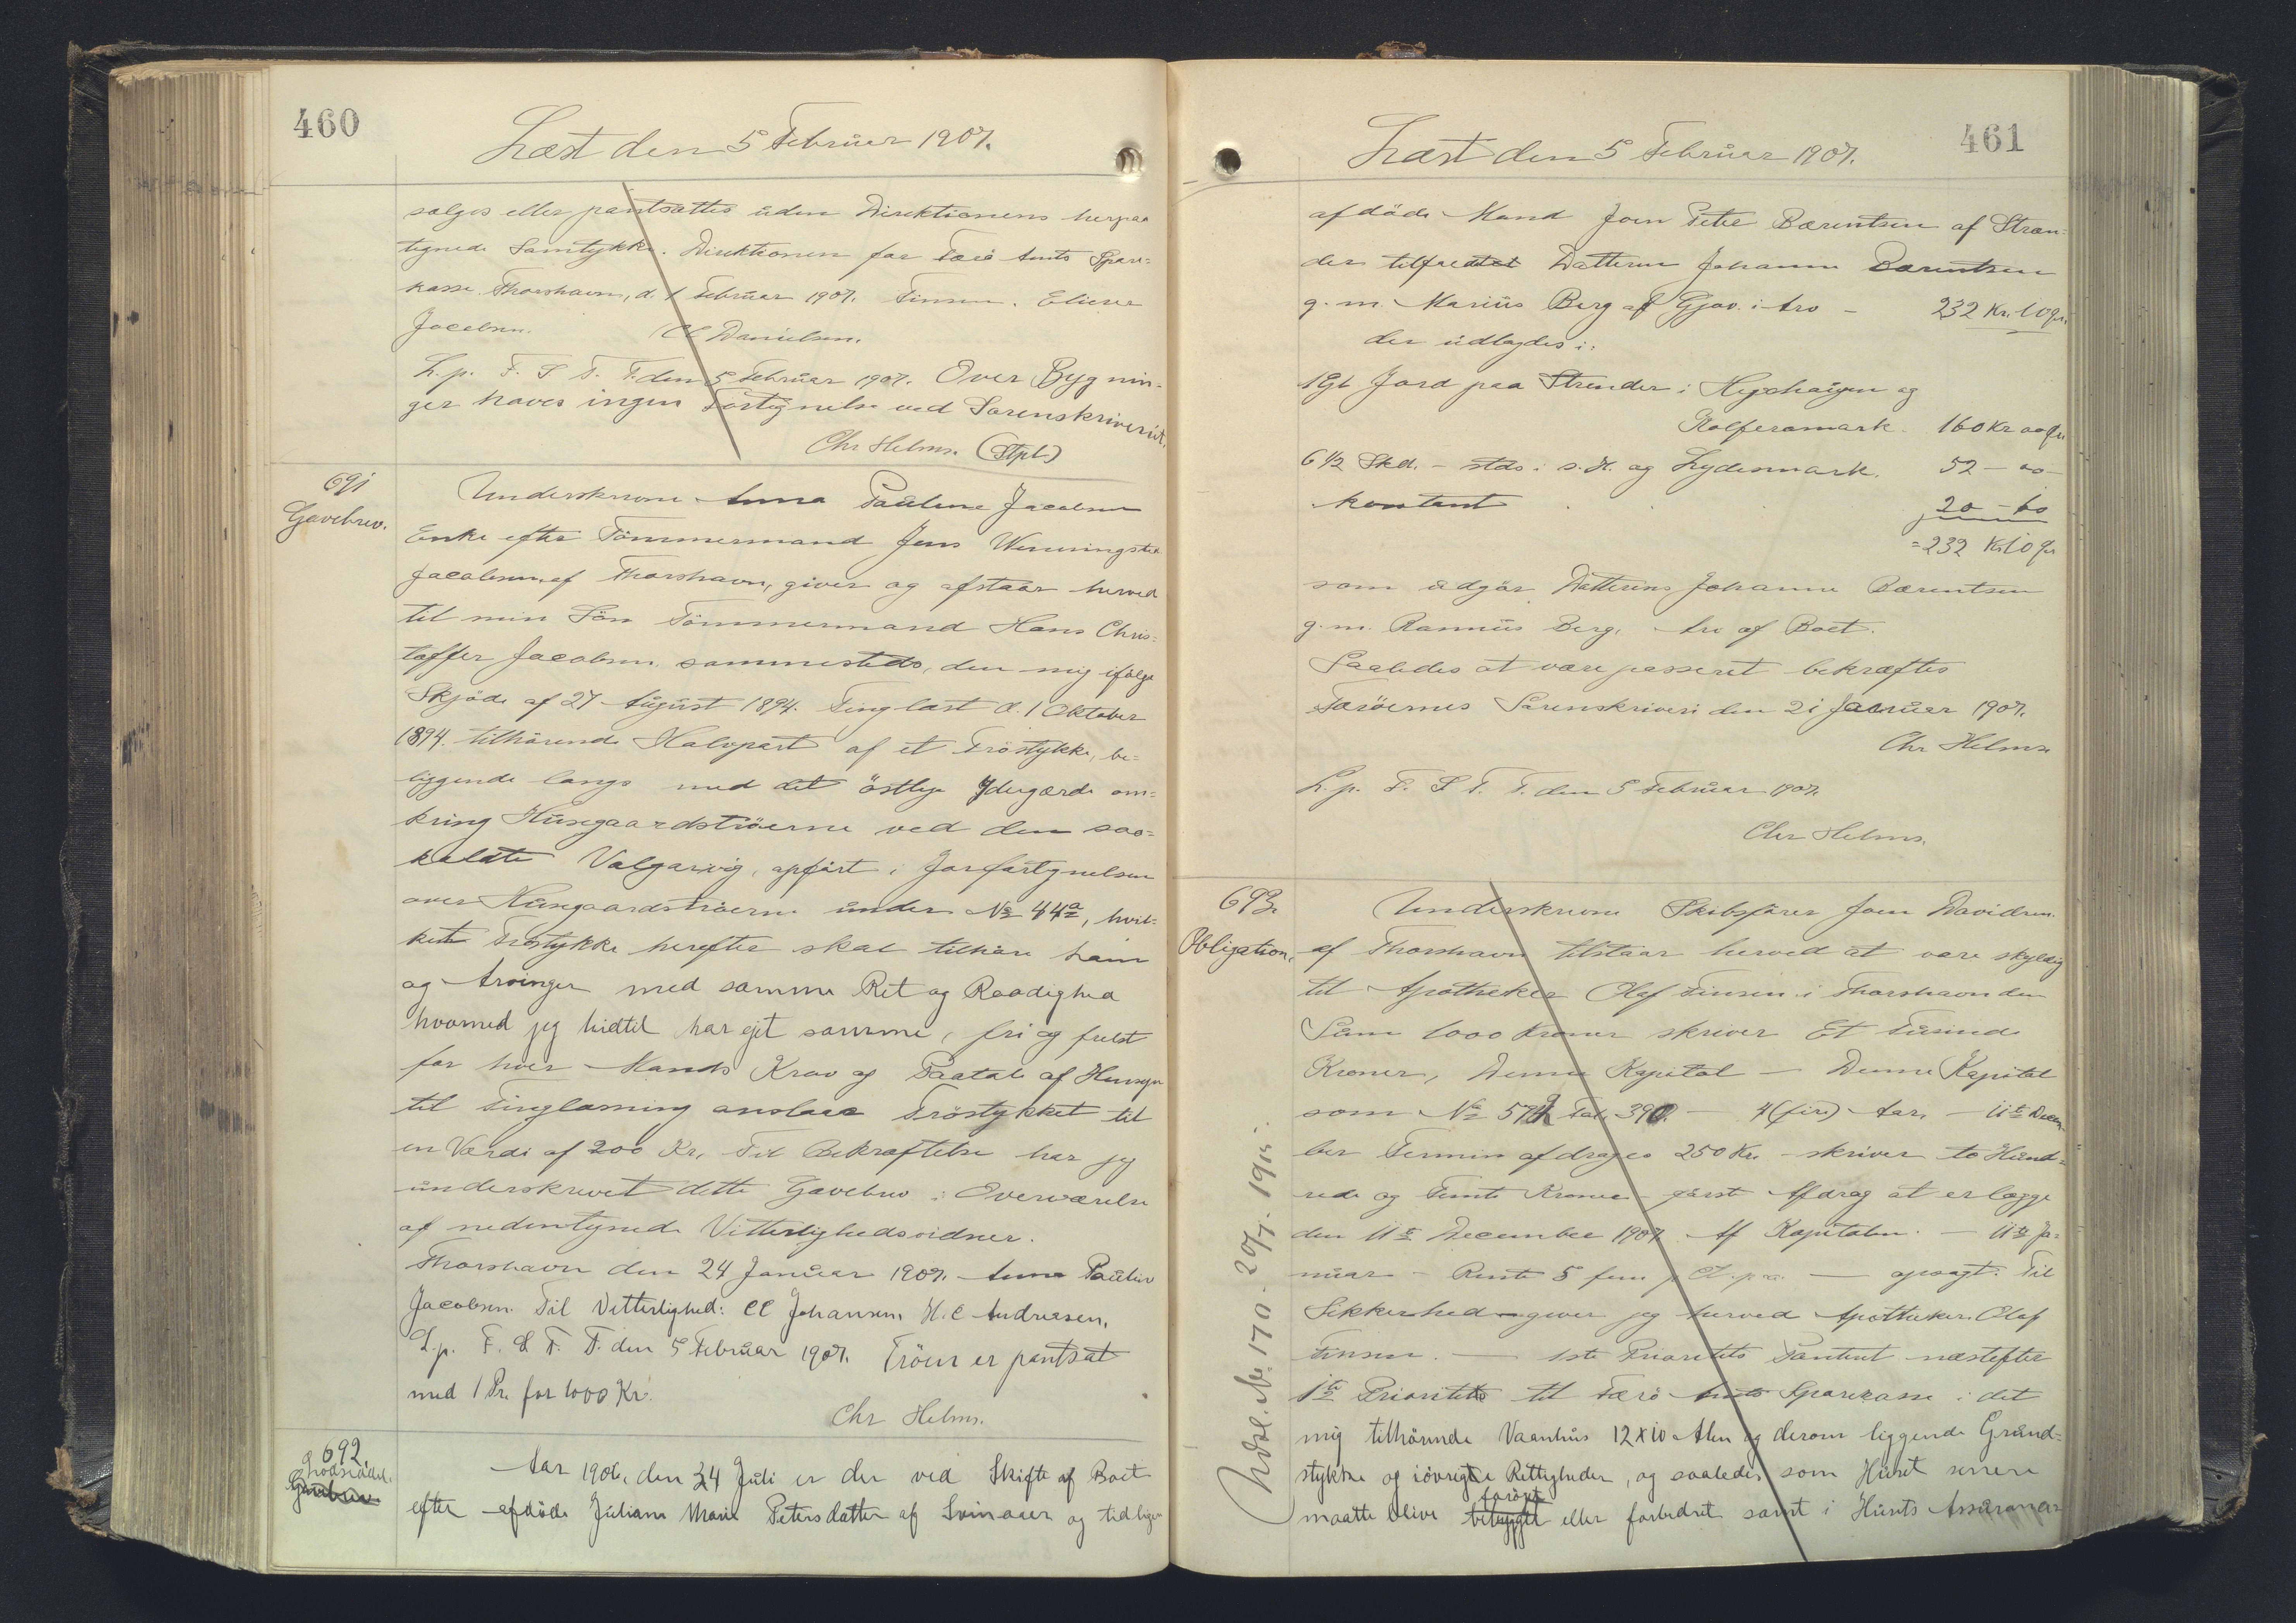 460
Læst den 5 Februar 1907.
sælges eller pantsættes uden Direktionens herpaa
tegnede Samtykke. Direktionen for Færø Amts Spare-
kasse. Thorshavn, d. 1 Februar 1907. Finsen. Elieser
Jacobsen. Cl Danielsen.
L. p. F. S T. T. den 5 Februar 1907. Over Bygnin-
ger haves ingen Fortegnelse ved Sorenskriveriet.
Chr Helms. (Stpl)
691
Gavebrev.
Underskrevne Anna Pauline Jacobsen
Enke efter Tömmermand Jens Wenningsted
Jacobsen, af Thorshavn, giver og afstaar herved
til min Søn Tömmermand Hans Chris-
toffer Jacobsen sammesteds, den mig ifølge
Skjöde af 27 August 1894. Tinglæst d. 1 Oktober
1894. tilhørende Halvpart af et Tröstykke, be-
liggende langs med det östlige Ydergærde om-
kring Husegaardströerne ved den saa-
kaldte Valgarvig, opført i Jorfortegnelsen
over Husegaardströerne under No 44a, hvil-
ket Tröstykke herefter skal tilhøre ham
og Arvinger med samme Ret og Raadighed
hvormed jeg hidtil har ejet samme, fri og frelst
for hver Mands Krav og Paatale af Hensyn
til Tinglæsning anslaar Tröstykket til
en Værdi af 200 Kr. Til Bekræftelse har jeg
underskrevet dette Gavebrev i Overværelse
af nedentegnede Vitterlighedsvidner.
Thorshavn den 24 Januar 1907. Anna Pauline
Jacobsen. Til Vitterlighed: CC Johansen, H. C Andreasen,
L. p. F. S T. T. den 5 Februar 1907. Tröen er pantsat
med 1 Pr. for 1000 Kr.
Chr Helms.
692.
Lodseddel.
Gavebrev.
Aar 1906, den 24 Juli er der ved Skifte af Boet
efter afdöde Juliane Marie Petersdatter af Svinaaer og tidligere
461
Læst den 5 Februar 1907.
afdöde Mand Joen Peter Bærentsen af Stræn-
der tilfredstet Datteren Johanne Bærentsen
g. m. Marius Berg af Gjov. i Arv - 232 Kr. 10 Ør.
der udlagdes i:
1 Gl Jord paa Strender i Hegshaugen og
Rolferamark. 160 Kr 00 Ør
6 1/2 Skd. - stds i s. H. og Lydersmark. 52 - 00 -
kontant 20 - 10
= 232 Kr 10 Ør
som udgör Datterens Johanne Bærentsen
g. m. Rasmus Berg, Arv af Boet.
Saaledes at være passeret bekræftes
Færöernes Sorenskriveri den 21 Januar 1907.
Chr Helms
L. p. F. S T. T. den 5 Februar 1907.
Chr Helms.
693.
Obligation.
Underskrevne Skibsfører Joen Davidsen
af Thorshavn tilstaar herved at være skyldig
til Apotheker Olaf Finsen i Thorshavn den
Sum 1000 Kroner skriver Et Tusinde
Kroner, Denne Kapital - Denne Kapital
som No 574 Fol. 390. - 4 (fire) Aar, - 11te Decem-
ber Termin afdrages 250 Kr. - skriver to Hund-
rede og Femti Kroner - først Afdrag at erlægge
den 11te December 1907. Af Kapitalen. - 11te Ja-
nuar - Rente 5 fem p Ct. p. a. - opsagt. Til
Sikkerhed giver jeg herved Apotheker Olaf
Finsen. - 1ste Prioritets Panteret næstefter
1ste Prioritets til Færö Amts Sparekasse i det
mig tilhørende Vaanhus 12 x 10 Alen og derom liggende Grund-
stykke og iövrigte Rettigheder, og saaledes som Huset senere
forøget
maatte blive bebygget eller forbedret samt i Husets Assurance
Udsl. No 170. 20/7. 1915.